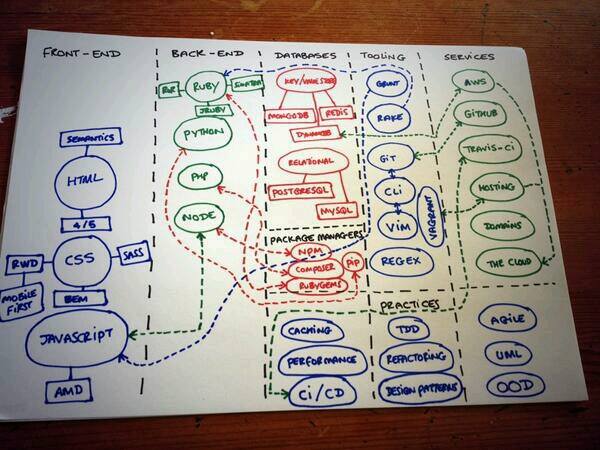 FRONT-END
SEMANTICS
HTML
4/5
CSS
SASS
RWD
MOBILE
FIRST
BEM
JAVASCRIPT
AMD
BACK-END
RUBY
RoR
SINATRA
JRUBY
PYTHON
PHP
NODE
DATABASES
KEY/VALUE STORE
MONGODB
REDIS
DYNAMODB
RELATIONAL
POSTGRESQL
MYSQL
PACKAGE MANAGERS
NPM
COMPOSER
PiP
RUBYGEMS
TOOLING
GRUNT
RAKE
GiT
CLi
VIM
VAGRANT
REGEX
SERVICES
AWS
GiTHUB
TRAVIS-Ci
HOSTING
DOMAINS
THE CLOUD
PRACTICES
CACHING
TDD
AGILE
PERFORMANCE
REFACTORING
UML
Ci/CD
DESIGN PATTERNS
OOD